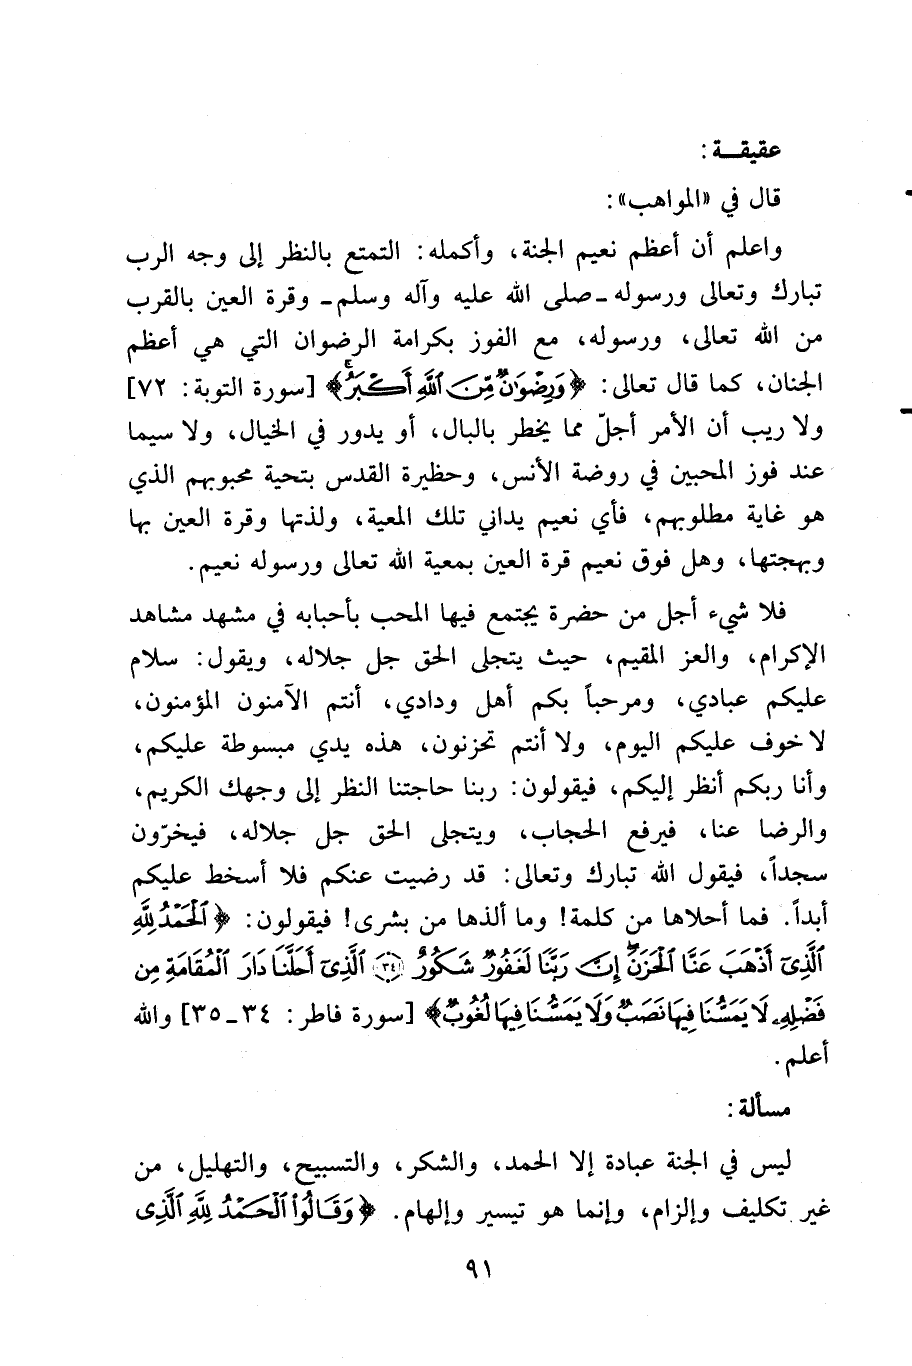 عقيقــة :
قال في «المواهب» :
واعلم أن أعظم نعيم الجنة، وأكمله: التمتع بالنظر إلى وجه الرب
تبارك وتعالى ورسوله ـ صلى الله عليه وآله وسلم ـ وقرة العين بالقرب
من الله تعالى، ورسوله، مع الفوز بكرامة الرضوان التي هي أعظم
الجنان، كما قال تعالى: ﴿وَرِضْوَٰنٌ مِّنَ ٱللَّهِ أَكْبَرُ﴾ [سورة التوبة: ٧٢]
ولا ريب أن الأمر أجلّ مما يخطر بالبال، أو يدور في الخيال، ولا سيما
عند فوز المحبين في روضة الأنس، وحظيرة القدس بتحية محبوبهم الذي
هو غاية مطلوبهم، فأي نعيم يداني تلك المعية، ولذتها وقرة العين بها
وبهجتها، وهل فوق نعيم قرة العين بمعية الله تعالى ورسوله نعيم.
فلا شيء أجل من حضرة يجتمع فيها المحب بأحبابه في مشهد مشاهد
الإكرام، والعز المقيم، حيث يتجلى الحق جل جلاله، ويقول: سلام
عليكم عبادي، ومرحباً بكم أهل ودادي، أنتم الآمنون المؤمنون،
لا خوف عليكم اليوم، ولا أنتم تحزنون، هذه يدي مبسوطة عليكم،
وأنا ربكم أنظر إليكم، فيقولون: ربنا حاجتنا النظر إلى وجهك الكريم،
والرضا عنا، فيرفع الحجاب، ويتجلى الحق جل جلاله، فيخرّون
سجداً، فيقول الله تبارك وتعالى: قد رضيت عنكم فلا أسخط عليكم
أبداً. فما أحلاها من كلمة! وما ألذها من بشرى! فيقولون: ﴿ٱلْحَمْدُ لِلَّهِ
ٱلَّذِىٓ أَذْهَبَ عَنَّا ٱلْحَزَنَ ۖ إِنَّ رَبَّنَا لَغَفُورٌ شَكُورٌ ﴿٣٤﴾ ٱلَّذِىٓ أَحَلَّنَا دَارَ ٱلْمُقَامَةِ مِن
فَضْلِهِۦ لَا يَمَسُّنَا فِيهَا نَصَبٌ وَلَا يَمَسُّنَا فِيهَا لُغُوبٌ﴾ [سورة فاطر: ٣٤ـ٣٥] والله
أعلم.
مسألة :
ليس في الجنة عبادة إلا الحمد، والشكر، والتسبيح، والتهليل، من
غير تكليف وإلزام، وإنما هو تيسير وإلهام. ﴿وَقَالُوا۟ ٱلْحَمْدُ لِلَّهِ ٱلَّذِىٓ
٩١